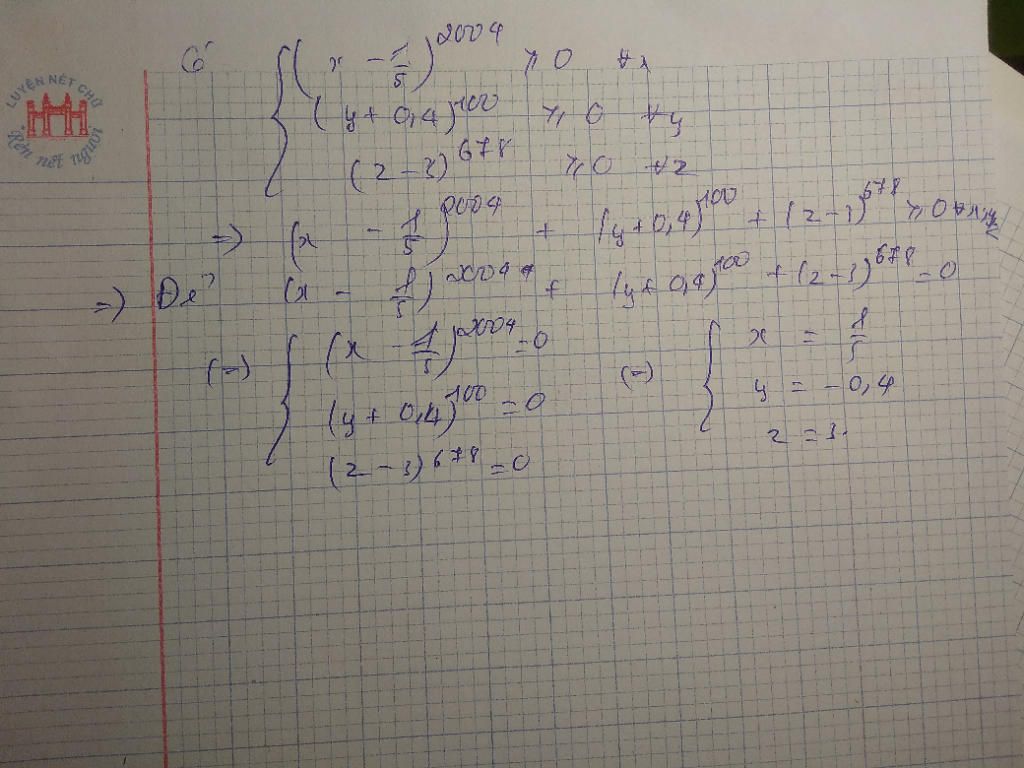 LUYỆN NÉT CHỮ
Rèn nết người
Có { (x - 1/5)^2004 ≥ 0 ∀x
(y + 0,4)^100 ≥ 0 ∀y
(z - 3)^678 ≥ 0 ∀z
=> (x - 1/5)^2004 + (y + 0,4)^100 + (z - 3)^678 ≥ 0 ∀x,y,z
=> Để (x - 1/5)^2004 + (y + 0,4)^100 + (z - 3)^678 = 0
(=) { (x - 1/5)^2004 = 0 (=) { x = 1/5
(y + 0,4)^100 = 0 y = -0,4
(z - 3)^678 = 0 z = 3.